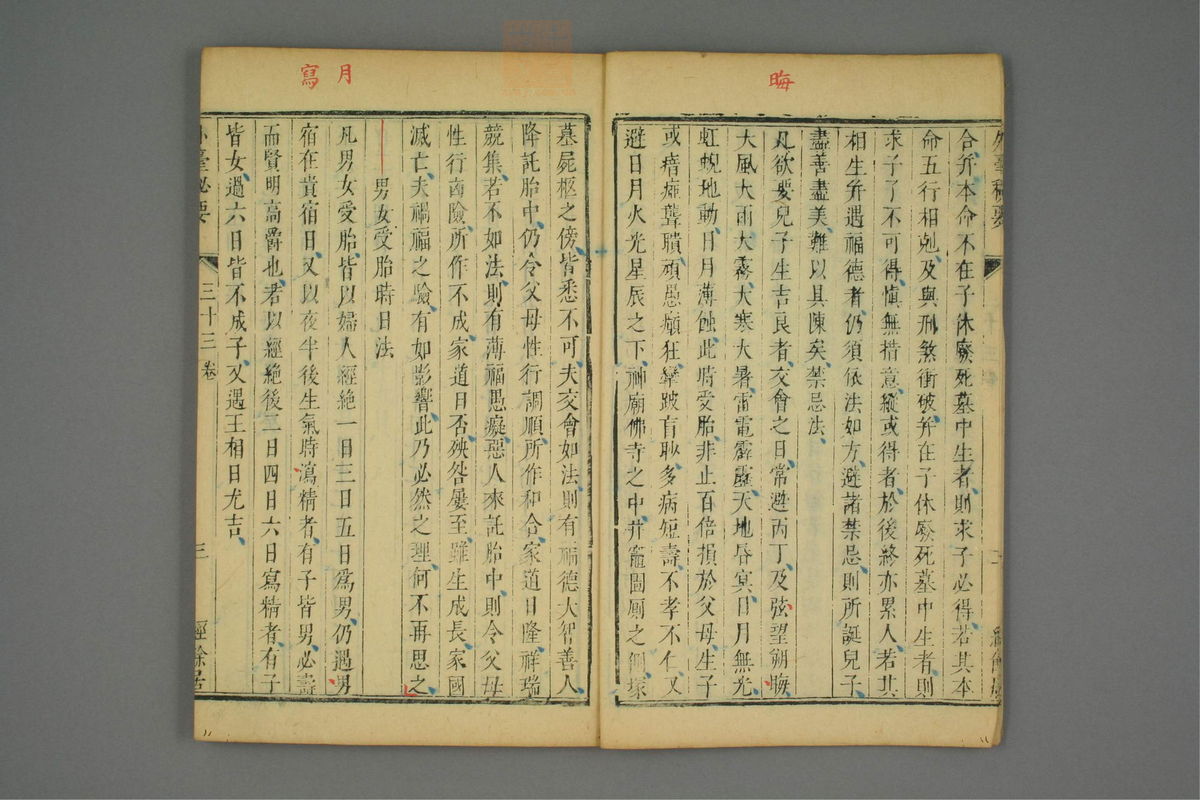 晦
合并本命不在子休廢死墓中生者則求子必得若其本
命五行相剋及與刑煞衝破并在子休廢死墓中生者則
求子了不可得慎無措意縱或得者於後終亦累人若其
相生并遇福德者仍須依法如方避諸禁忌則所誕兒子
盡善盡美難以具陳矣禁忌法
凡欲要兒子生吉良者交會之日常避丙丁及弦望朔晦
大風大雨大霧大寒大暑雷電霹靂天地昏冥日月無光
虹蜺地動日月薄蝕此時受胎非止百倍損於父母生子
或瘖瘂聾聵頑愚癲狂攣跛盲眇多病短壽不孝不仁又
避日月火光星辰之下神廟佛寺之中井竈圊厠之側塚
月
寫
墓屍柩之傍皆悉不可夫交會如法則有福德大智善人
降託胎中仍令父母性行調順所作和合家道日隆祥瑞
競集若不如法則有薄福愚癡惡人來託胎中則令父母
性行凶險所作不成家道日否殃咎屢至雖生成長家國
滅亡夫禍福之驗有如影響此乃必然之理何不再思之
男女受胎時日法
凡男女受胎皆以婦人經絶一日三日五日爲男仍遇男
宿在貴宿日又以夜半後生氣時瀉精者有子皆男必壽
而賢明高爵也若以經絶後二日四日六日寫精者有子
皆女過六日皆不成子又遇王相日尤吉
外臺秘要 三十三卷 三 經餘居